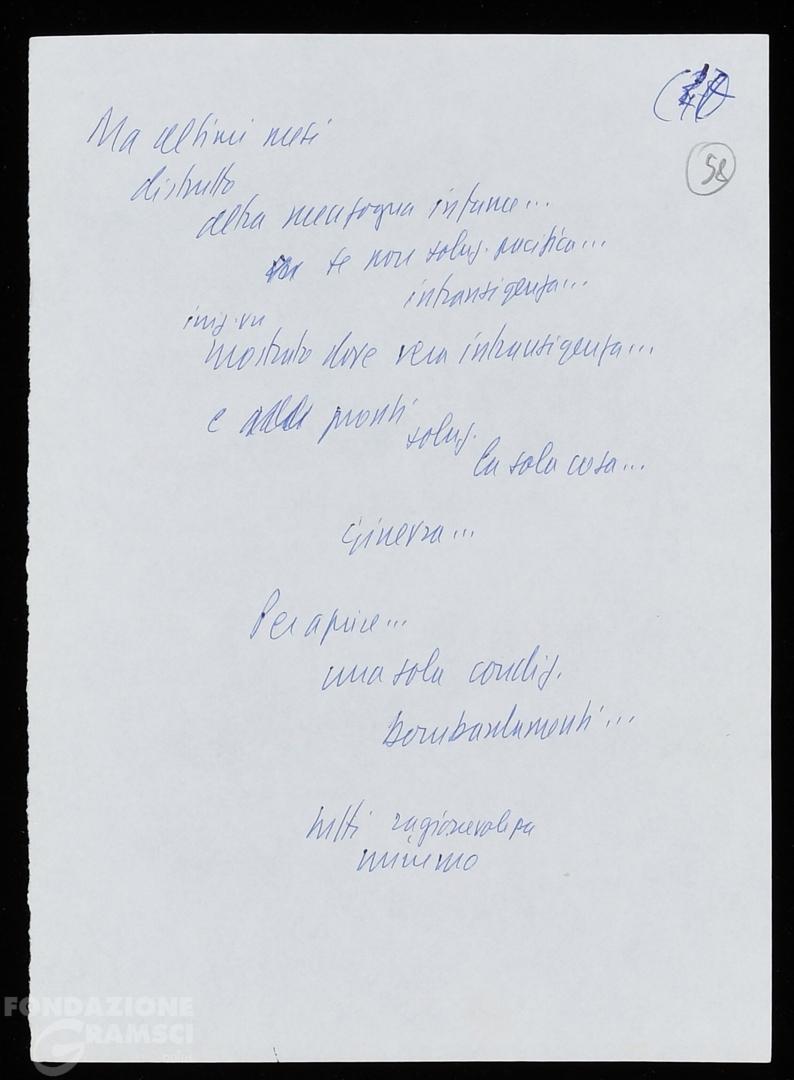 58
Ma ultimi mesi
distrutto
altra menzogna infame...
se non soluz. pacifica...
intransigenza...
iniz. VN
mostrato dove vera intransigenza...
e pronti
soluz.
la sola cosa...
Ginevra...
Per aprire...
una sola condiz.
bombardamenti...
tutti ragionevolezza
minimo
FONDAZIONE
GRAMSCI